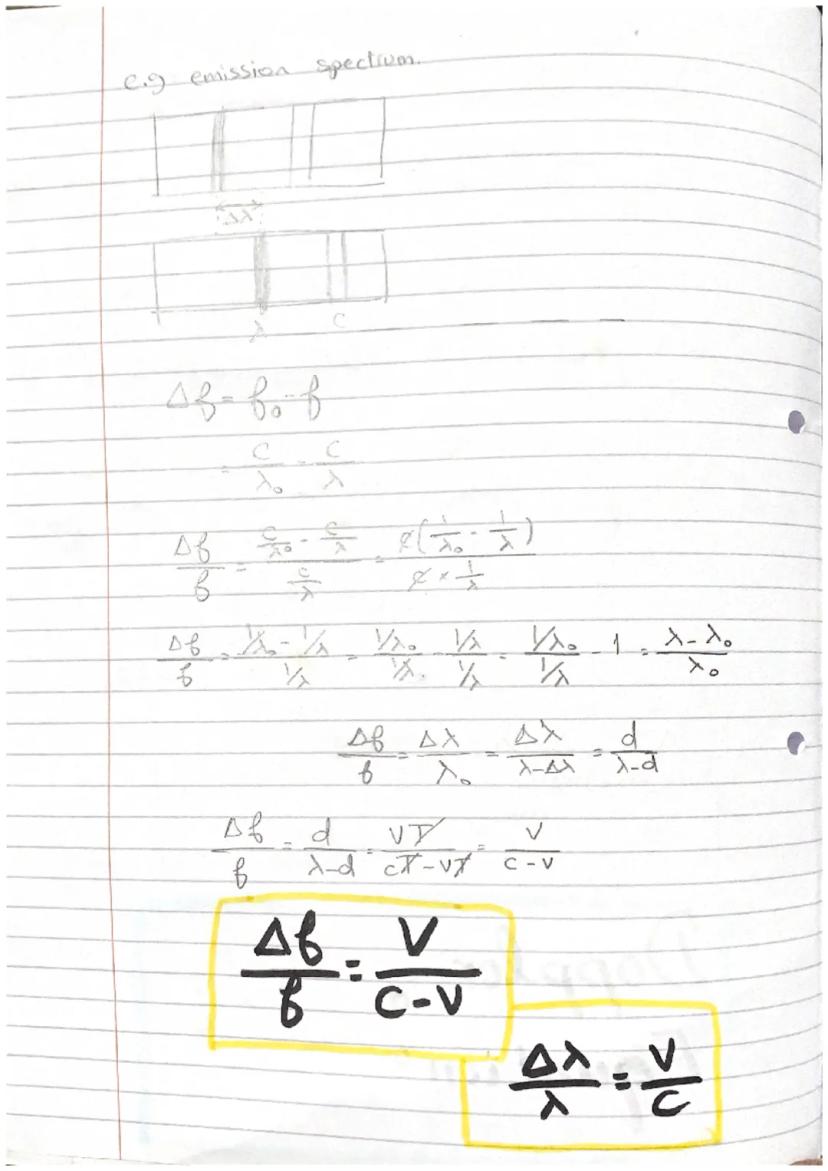 e.g emission spectrum.
Δλ
λ C
Δf = f₀ - f
= C/λ₀ - C/λ
Δf/f = (C/λ₀ - C/λ)/(C/λ) = C(1/λ₀ - 1/λ)/(C × 1/λ)
Δf/f = (1/λ₀ - 1/λ)/(1/λ) = (1/λ₀)/(1/λ) - (1/λ)/(1/λ) = (1/λ₀)/(1/λ) - 1 = (λ - λ₀)/λ₀
Δf/f = Δλ/λ₀ = Δλ/(λ - Δλ) = d/(λ - d)
Δf/f = d/(λ - d) = VT/(CT - VT) = V/(C - V)
Δf/f = V/(C - V)
Δλ/λ = V/C